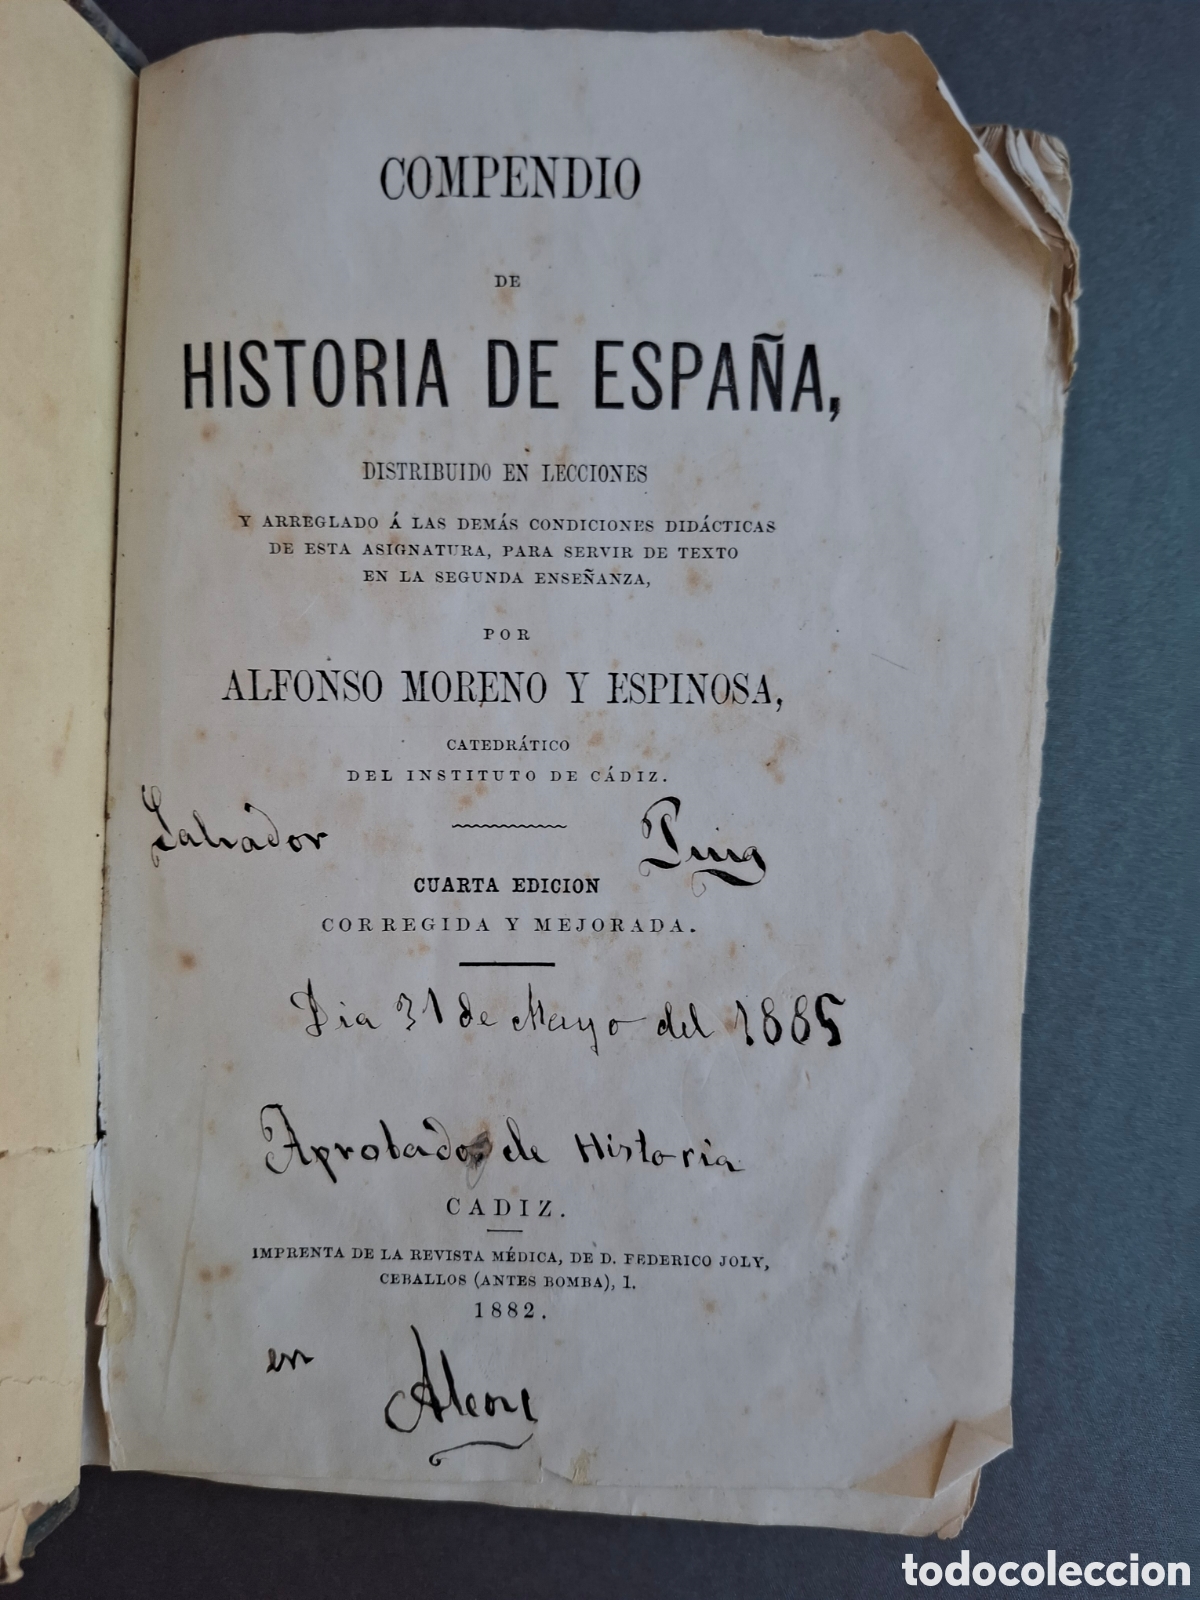 COMPENDIO
DE
HISTORIA DE ESPAÑA,
DISTRIBUIDO EN LECCIONES
Y ARREGLADO Á LAS DEMÁS CONDICIONES DIDÁCTICAS
DE ESTA ASIGNATURA, PARA SERVIR DE TEXTO
EN LA SEGUNDA ENSEÑANZA,
POR
ALFONSO MORENO Y ESPINOSA,
CATEDRÁTICO
DEL INSTITUTO DE CÁDIZ.
Salvador Puig
CUARTA EDICION
CORREGIDA Y MEJORADA.
Dia 31 de Mayo del 1885
Aprobado de Historia
CADIZ.
IMPRENTA DE LA REVISTA MÉDICA, DE D. FEDERICO JOLY,
CEBALLOS (ANTES BOMBA), 1.
1882.
en
todocoleccion